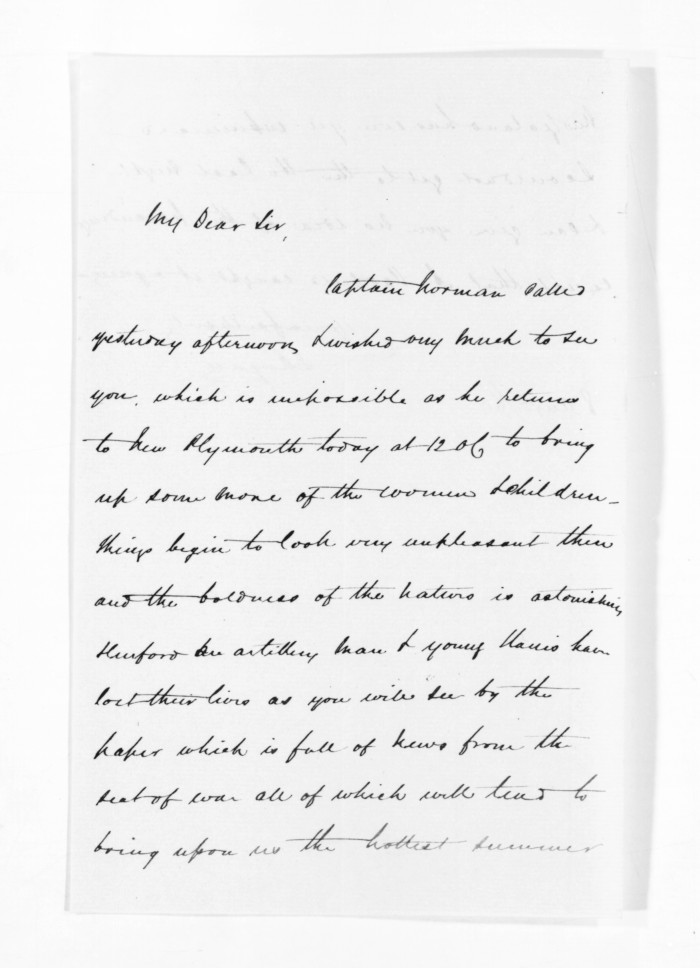 My Dear Sir,
Captain Norman called
yesterday afternoon, & wished very much to see
you, which is impossible as he returns
to New Plymouth today at 12 o/c to bring
up some more of the women & children –
things begin to look very unpleasant there
and the boldness of the natives is astonishing
Hurford an artillery man & young Harris have
lost their lives as you will see by the
paper which is full of news from the
seat of war all of which will tend to
bring upon us the hottest summer